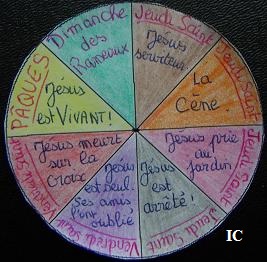 Dimanche
des
Rameaux
Jeudi Saint
Jésus
serviteur
Jeudi Saint
La
Cène.
Jeudi Saint
Jésus prie
au
jardin
Jeudi Saint
Jésus
est
arrêté!
Vendredi Saint
Jésus
est seul.
ses amis
l'ont
oublié
Vendredi Saint
Jésus meurt
sur la
croix
PÂQUES
Jésus
est VIVANT!
IC